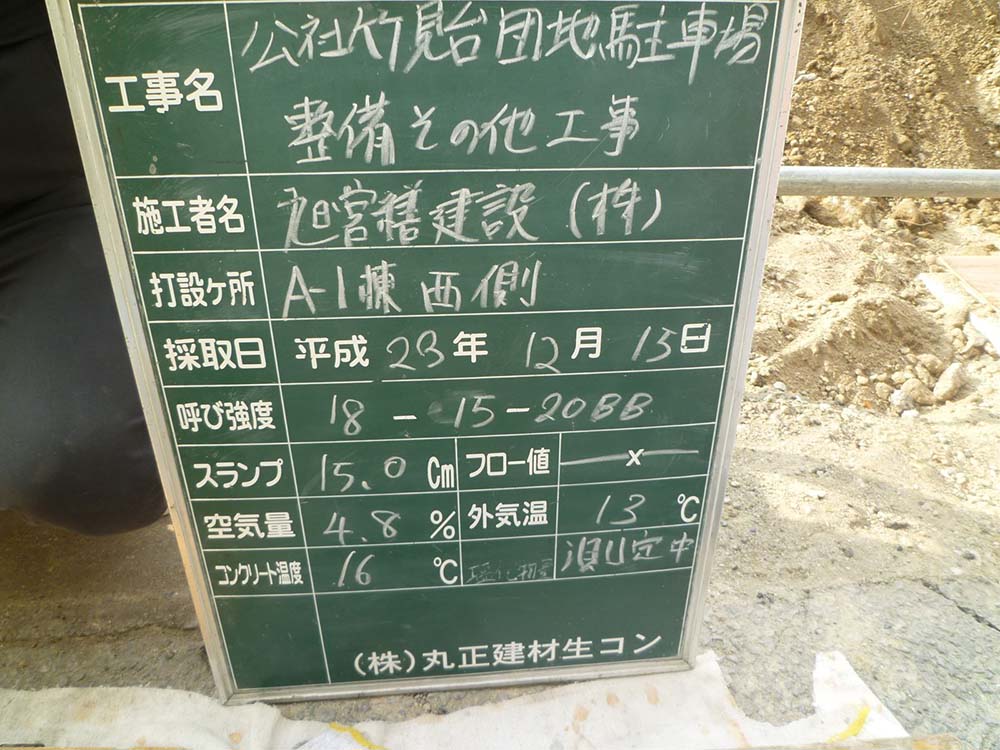 工事名 公社竹見台団地駐車場
整備その他工事
施工者名 旭営繕建設(株)
打設ヶ所 A-1棟 西側
採取日 平成 23年 12月 15日
呼び強度 18 - 15 - 20BB
スランプ 15.0 Cm フロー値 x
空気量 4.8 % 外気温 13 ℃
コンクリート温度 16 ℃ 測定中
(株)丸正建材生コン